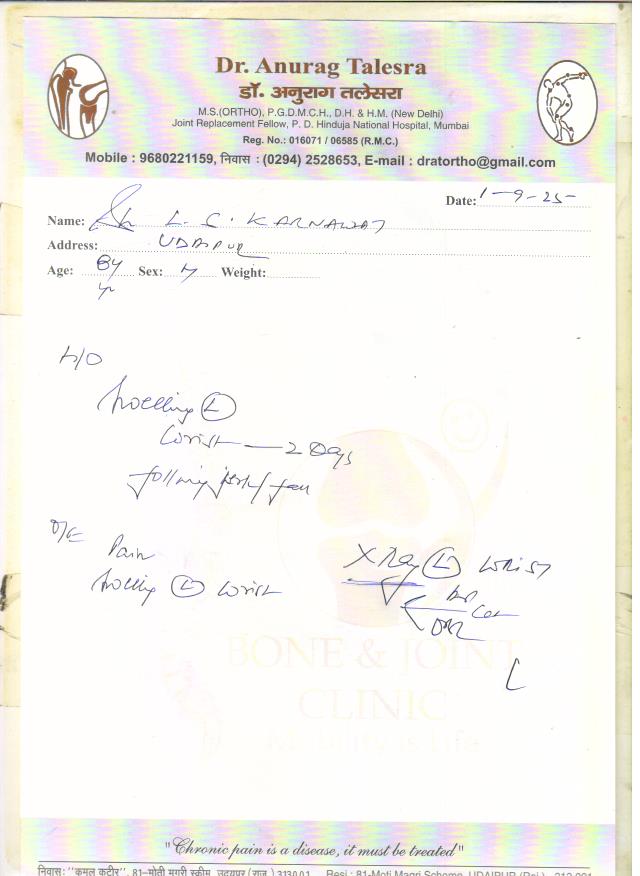 Dr. Anurag Talesra
डॉ. अनुराग तलेसरा
M.S.(ORTHO), P.G.D.M.C.H., D.H. & H.M. (New Delhi)
Joint Replacement Fellow, P. D. Hinduja National Hospital, Mumbai
Reg. No.: 016071 / 06585 (R.M.C.)
Mobile : 9680221159, निवास : (0294) 2528653, E-mail : dratortho@gmail.com
Date: 1-9-25
Name: Sh L. C. KARNAWAT
Address: UDAIPUR
Age: 84 yr Sex: M Weight:
H/O
Swelling (L)
Wrist — 2 Days
following jerk / fall
O/E
Pain
Swelling (L) Wrist
X Ray (L) WRIST
AP
BONE & JOINT
CLINIC
Mobility is Life
"Chronic pain is a disease, it must be treated"
निवास: "कमल कुटीर", 81-मोती मगरी स्कीम, उदयपुर (राज.) 313001 Resi.: 81-Moti Magri Scheme, UDAIPUR (Raj.)